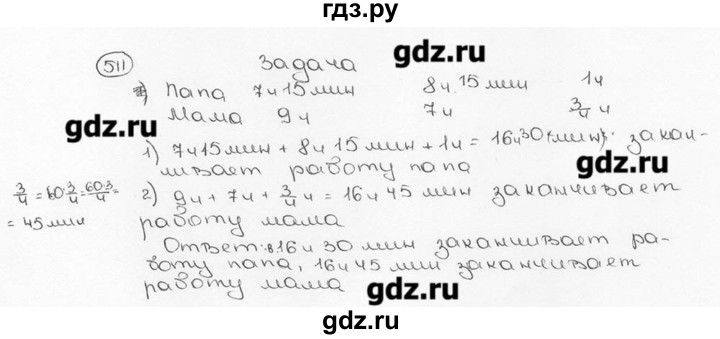 гдз.ру
511 Задача gdz.ru
Папа 7ч 15мин 8ч 15 мин 1ч
Мама 9ч 7ч 3/4 ч
gdz.ru
1) 7ч 15мин + 8ч 15 мин + 1ч = 16ч 30 (мин) закан-
чивает работу папа gdz.ru
3/4 = 60·3/4 = 60·3/4 = 2) 9ч + 7ч + 3/4 ч = 16ч 45 мин заканчивает
= 45мин работу мама
Ответ: в 16ч 30 мин заканчивает ра-
боту папа, 16ч 45 мин заканчивает
работу мама gdz.ru
gdz.ru